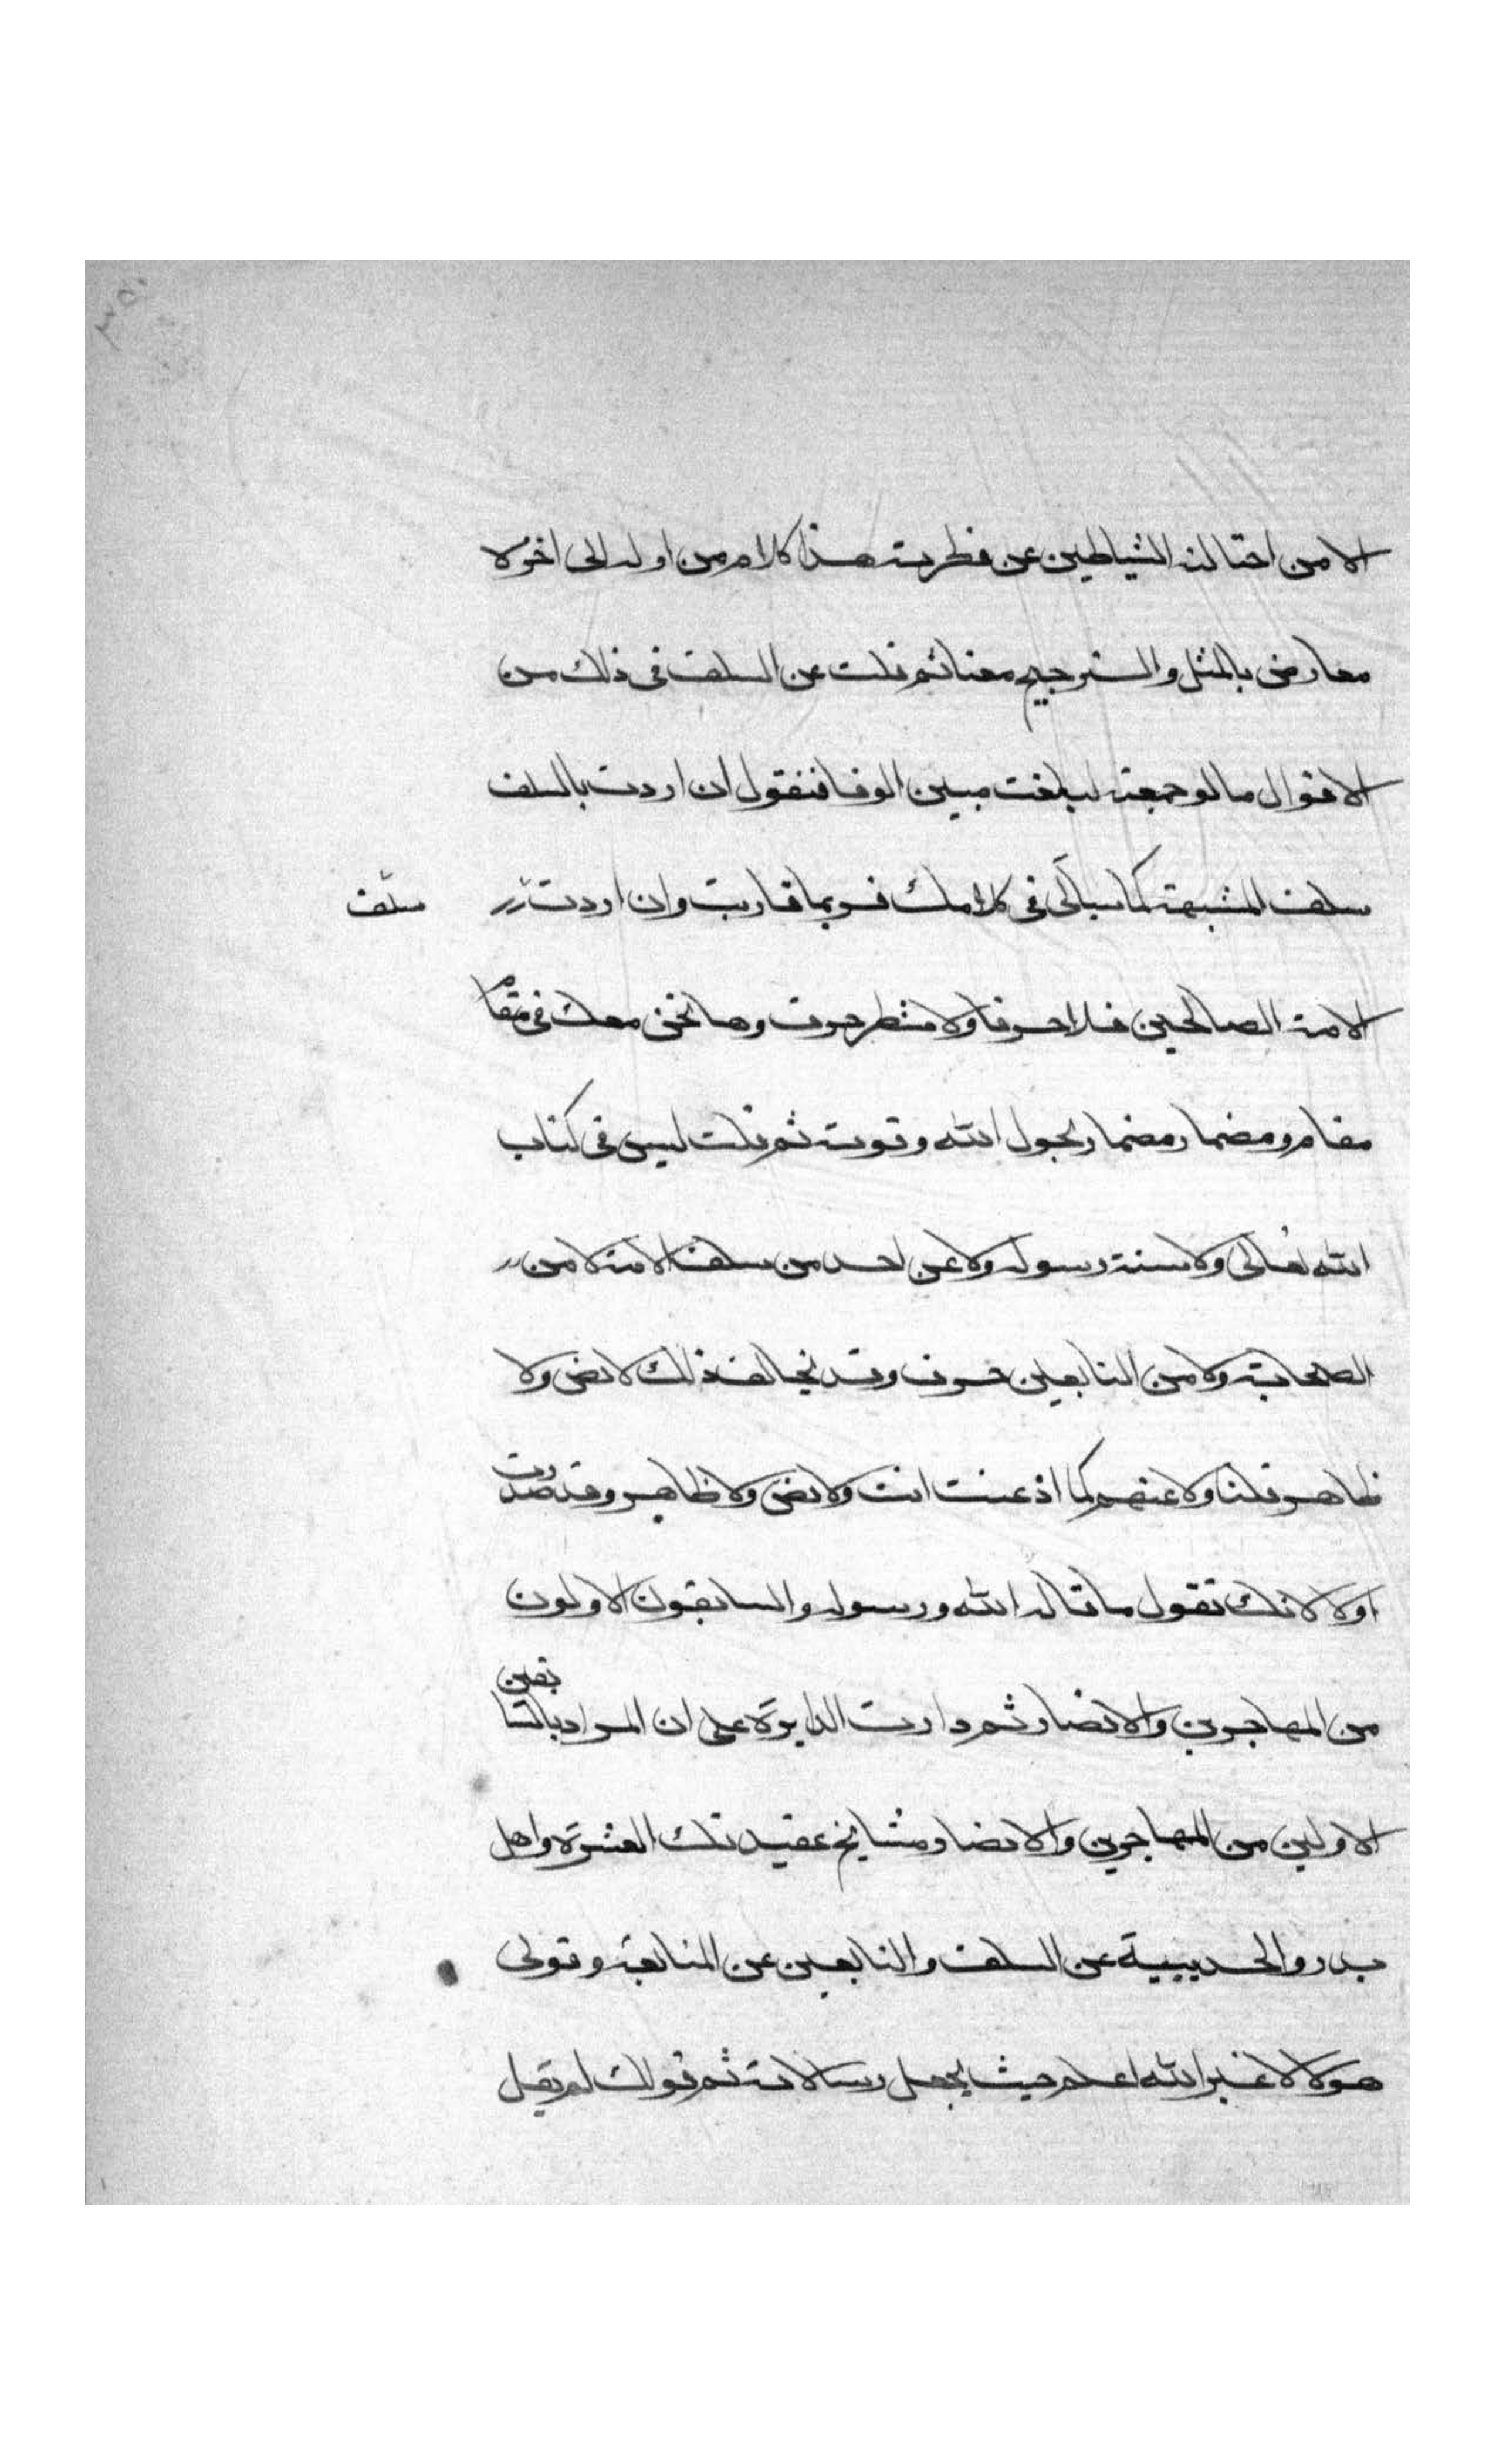 الا من احتالته الشياطين عن فطرته هذا كلامه من اوله الى اخره لا
معارض بالمثل والترجيح معنا ثم قلت عن السلف في ذلك من
الاقوال ما لو جمعته لبلغت مبين الوفا فنقول ان اردت بالسلف
سلف المشبهة كما سيأتي في كلامك فربما قاربت وان اردت سلف
الامة الصالحين فلا حرفا ولا شطر حرف وها نحن معك في مقام
مقام ومضمار مضمار بحول الله وقوته ثم قلت ليس في كتاب
الله تعالى ولا سنة رسوله ولا عن احد من سلف الامة لا من
الصحابة ولا من التابعين حرف وقد يخالف ذلك لا نص ولا
ظاهر قلنا ولا عنهم كما ادعيت انت ولا نص ولا ظاهر وقد صدرت
اولا لانك تقول ما قاله الله ورسوله والسابقون الاولون
من المهاجرين والانصار ثم دارت الدايرة على ان المراد بالسابقين
الاولين من المهاجرين والانصار مشايخ عقيدتك العشرة واهل
بدر والحديبية عن السلف والتابعين عن المتابعة وتولى
هولا لا غير الله اعلم حيث يجعل رسالاته ثم قولك لم يقل